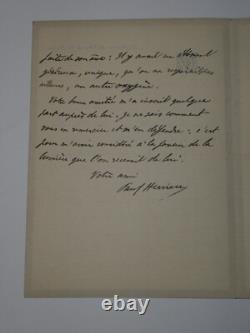 faite de son âme : Il y avait un élément
généreux, unique, qu'on ne respirait
ailleurs, un autre oxygène.
Votre bonne amitié m'a inscrit quelque
part auprès de lui, je ne sais comment
vous en remercier et m'en défendre : c'est
pour m'avoir considéré à la faveur de la
lumière que l'on recevait de lui.
Votre ami
Paul Hervieu